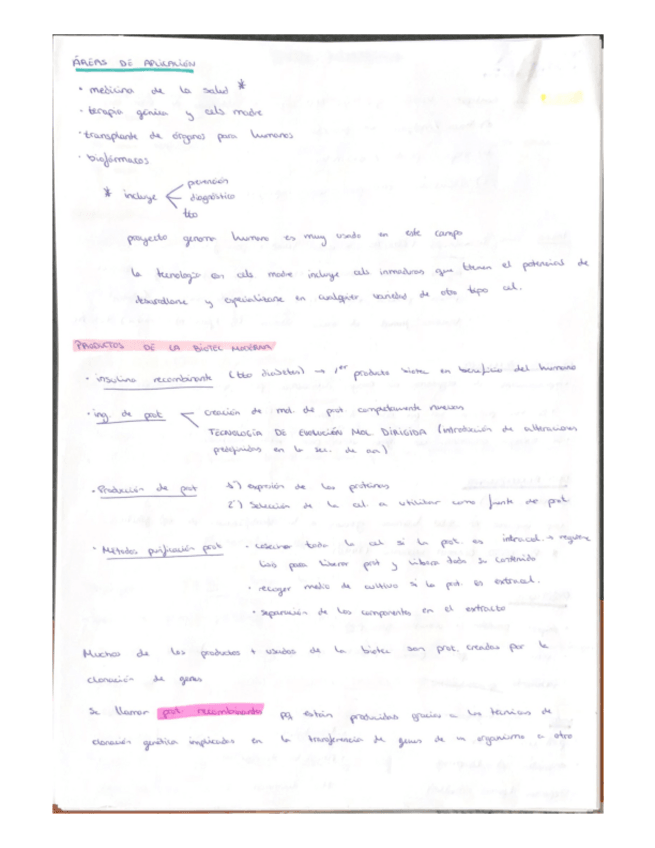 ÁREAS DE APLICACIÓN
· medicina de la salud *
· terapia génica y cels madre
· transplante de órganos para humanos
· biofármacos
* incluye prevención
diagnóstico
tto
proyecto genoma humano es muy usado en este campo
la tecnología con cels madre incluye cels inmaduras que tienen el potencial de
desarrollarse y especializarse en cualquier variedad de otro tipo cel.
PRODUCTOS DE LA BIOTEC MODERNA
· insulina recombinante (tto diabetes) → 1er producto biotec en beneficio del humano
· ing. de prot creación de mol. de prot. completamente nuevas
TECNOLOGÍA DE EVOLUCIÓN MOL DIRIGIDA (introducción de alteraciones
en la sec. de aa)
· Producción de prot 1º) expresión de las proteínas
2º) Selección de la cel a utilizar como fuente de prot
· Métodos purificación prot · cosechar toda la cel si la prot es intracel. → requiere
lisis para liberar prot y libera todo su contenido
· recoger medio de cultivo si la prot. es extracel.
· separación de los componentes en el extracto
Muchos de los productos + usados de la biotec son prot. creadas por la
clonación de genes
Se llaman prot recombinantes pq están producidas gracias a las técnicas de
clonación genética implicadas en la transferencia de genes de un organismo a otro